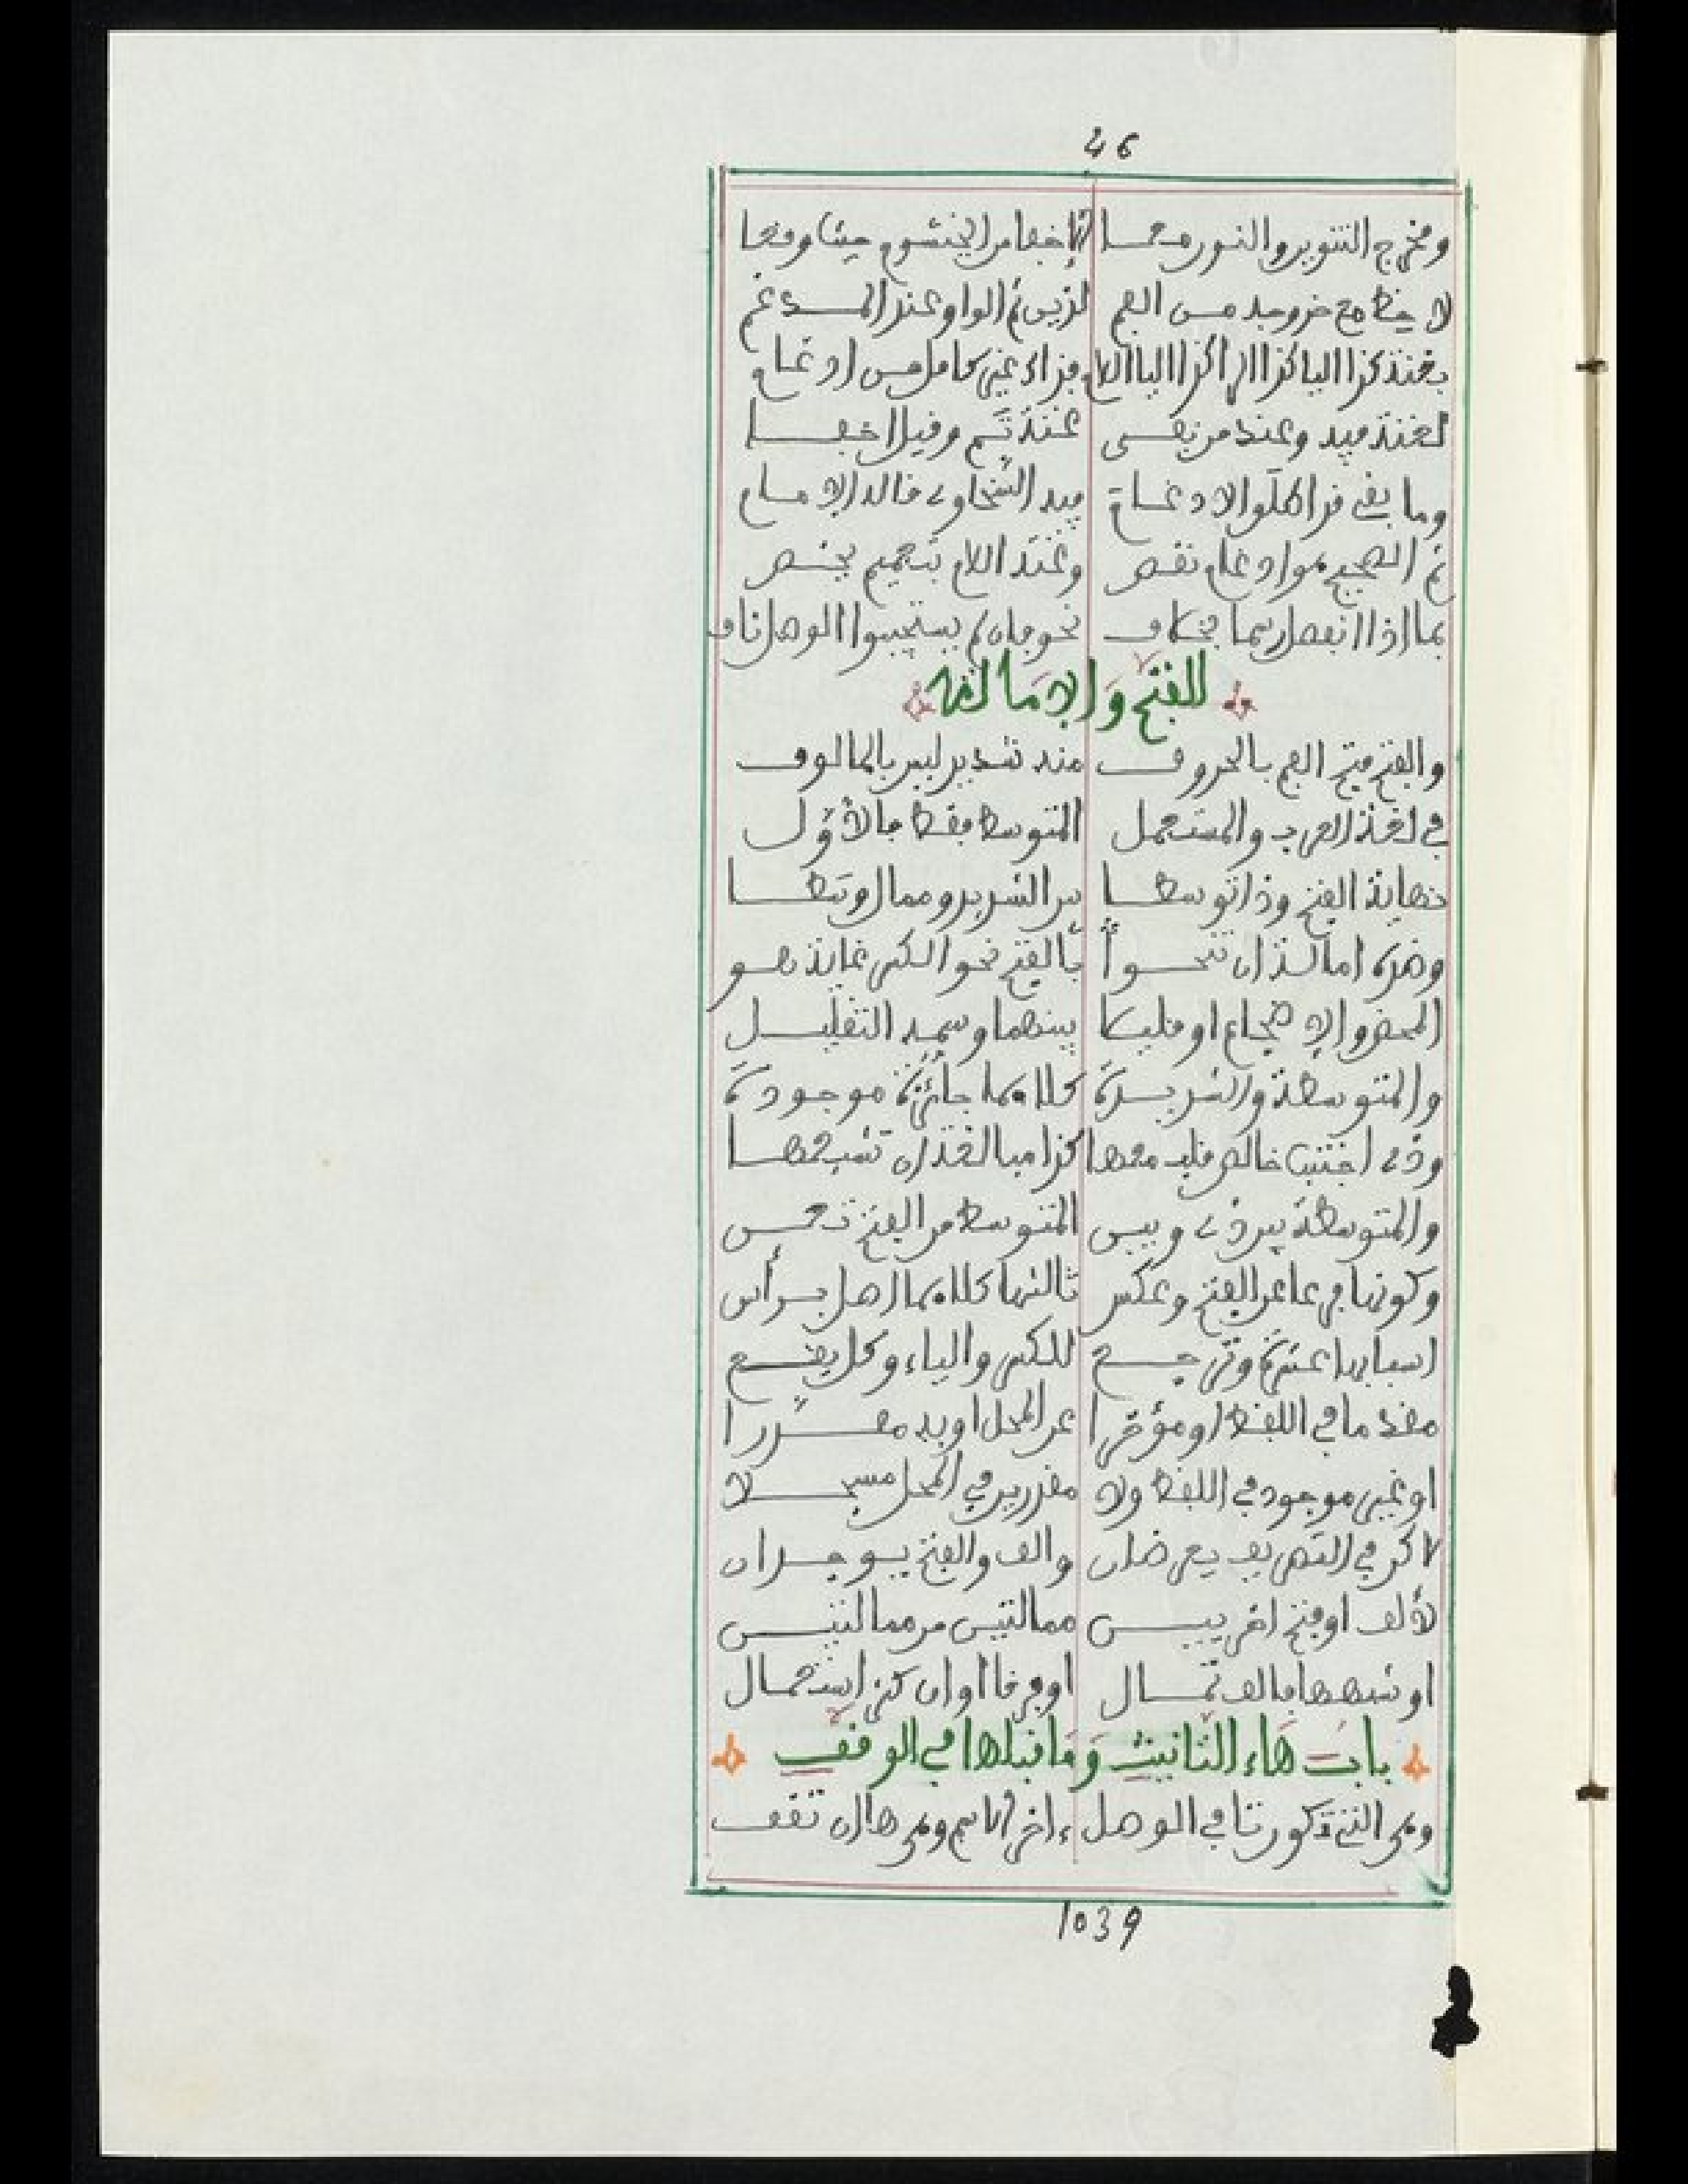 46
ومخرج التنوين والنون معا إن اخفيا من الخيشوم حيثما وقعا
لا حظ مع خروجه من الفم لذين ثم الواو عند المدغم
بغنة كذا اليا كذا
لغنة فيه وعند من نفى غنة تم وقيل اخفا
وما بقي قد اكملوا الادغام فيه السخاوي قاله الامام
ثم الصحيح مع ادغام نقص وغنة اللام بتعميم يخص
بما اذا انفصل رسما يخاف نحو فإن لم يستجيبوا الوصل ناف
الفتح والإمالة
والفتح فتح الفم بالحروف منه شديد ليس بالمالوف
في لغة العرب والمستعمل المتوسط فقط فالأول
نهاية الفتح وذا توسطا بين الشديد وممال وسطا
وهذه امالة ان تنحوا بالفتح نحو الكسر غاية هو
المحض والإضجاع او قليلا بينهما وسمه التقليل
والمتوسطة والشديدة كلاهما جائزة موجودة
وذي اجتنب خالص قلب معها كذا مبالغة ان تشبعها
والمتوسطة بين ذي وبين المتوسط من الفتح تعن
وكونها فرعا عن الفتح وعكس ثالثها كلاهما اصل برأس
اسبابها عشرة وترجع للكسر والياء وكل يقع
مقدما في اللفظ او مؤخرا عن المحل او به مقدرا
او غير موجود في اللفظ ولا مقدرين في المحل مسجلا
لاكن في التصريف يعرضان والف والفتح يوجدان
لألف او فتح اخريين ممالتين من ممالتين
او شبهها بالف تمال او فرقا او ان كثر استعمال
باب هاء التانيث وما قبلها في الوقف
وهي التي تكون تا في الوصل ءاخر الاسم وهي ها ان تقف
1039